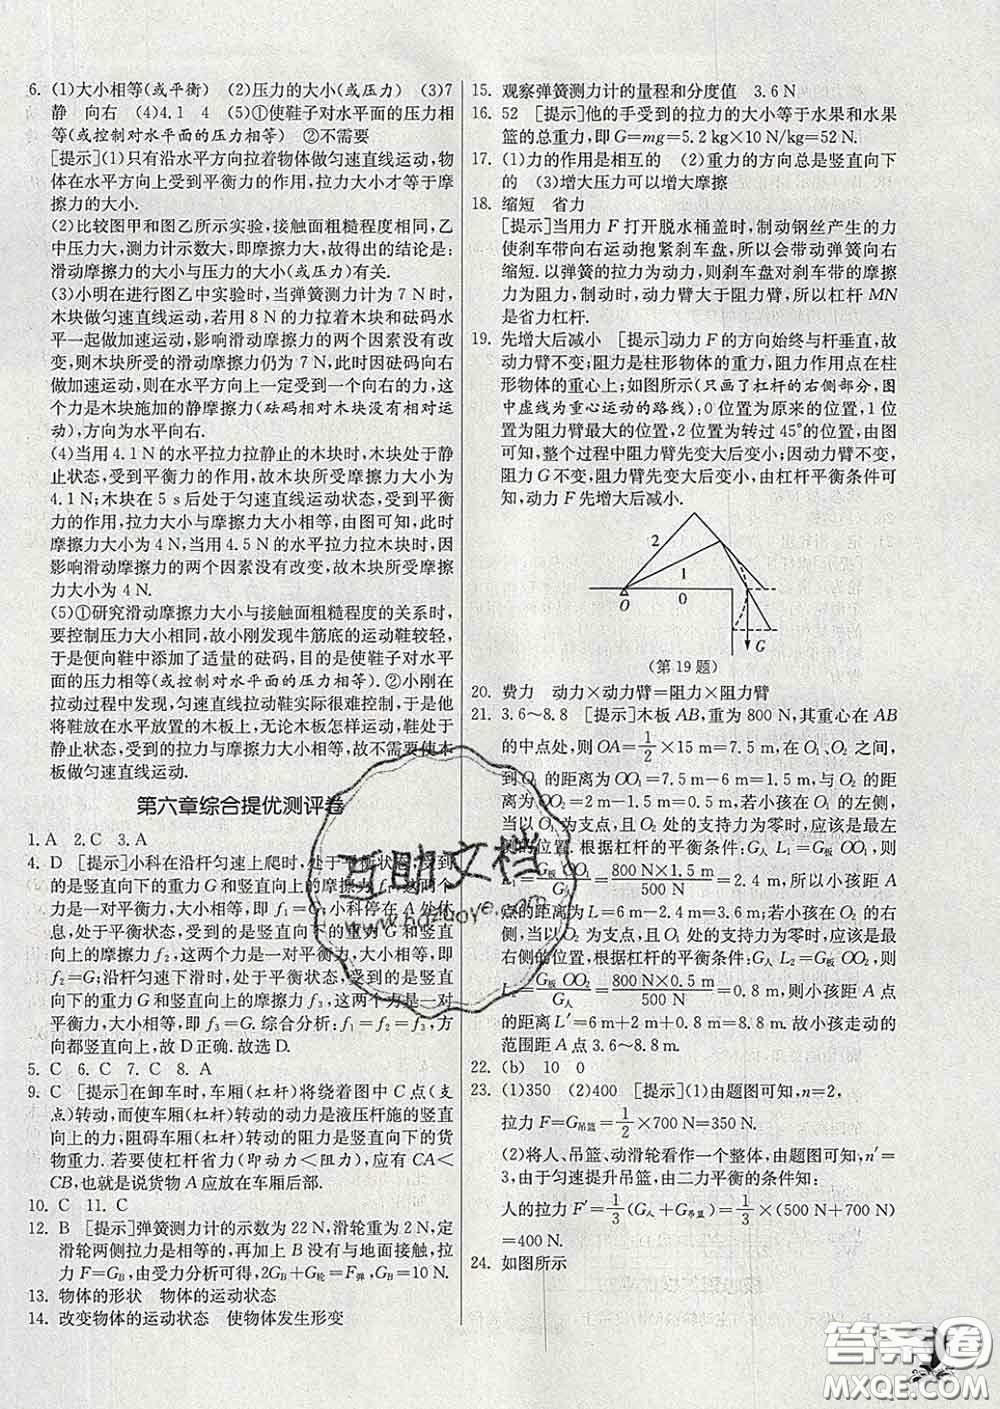 6. (1)大小相等(或平衡)　(2)压力的大小(或压力)　(3)7
静　向右　(4)4.1　4　(5)①使鞋子对水平面的压力相
等(或控制对水平面的压力相等)　②不需要
[提示](1)只有沿水平方向拉着物体做匀速直线运动,物
体在水平方向上受到平衡力的作用,拉力大小才等于摩
擦力的大小.
(2)比较图甲和图乙所示实验,接触面粗糙程度相同,乙
中压力大,测力计示数大,即摩擦力大,故得出的结论是:
滑动摩擦力的大小与压力的大小(或压力)有关.
(3)小明在进行图乙中实验时,当弹簧测力计为 7 N 时,
木块做匀速直线运动,若用 8 N 的力拉着木块和砝码水
平一起做加速运动,影响滑动摩擦力的两个因素没有改
变,则木块所受的滑动摩擦力仍为 7 N,此时因砝码向右
做加速运动,则在水平方向上一定受到一个向右的力,这
个力是木块施加的静摩擦力(砝码相对木块没有相对运
动),方向为水平向右.
(4)当用 4.1 N 的水平拉力拉静止的木块时,木块处于静
止状态,受到平衡力的作用,故木块所受摩擦力大小为
4.1 N;木块在 5 s 后处于匀速直线运动状态,受到平衡
力的作用,拉力大小与摩擦力大小相等,由图可知,此时
摩擦力大小为 4 N,当用 4.5 N 的水平拉力拉木块时,因
影响滑动摩擦力的两个因素没有改变,故木块所受摩擦
力大小为 4 N.
(5)①研究滑动摩擦力大小与接触面粗糙程度的关系时,
要控制压力大小相同,故小刚发现牛筋底的运动鞋较轻,
于是便向鞋中添加了适量的砝码,目的是使鞋子对水平
面的压力相等(或控制对水平面的压力相等).②小刚在
拉动过程中发现,匀速直线拉动鞋实际很难控制,于是他
将鞋放在水平放置的木板上,无论木板怎样运动,鞋处于
静止状态,受到的拉力与摩擦力大小相等,故不需要使木
板做匀速直线运动.
第六章综合提优测评卷
1. A　2. C　3. A
4. D　[提示]小科在沿杆匀速上爬时,处于平衡状态,受到
的是竖直向下的重力 G 和竖直向上的摩擦力 f₁,这两个
力是一对平衡力,大小相等,即 f₁=G;小科停在 A 处休
息,处于平衡状态,受到的是竖直向下的重力 G 和竖直
向上的摩擦力 f₂,这两个力是一对平衡力,大小相等,即
f₂=G;沿杆匀速下滑时,处于平衡状态,受到的是竖直向
下的重力 G 和竖直向上的摩擦力 f₃,这两个力是一对平
衡力,大小相等,即 f₃=G. 综合分析:f₁=f₂=f₃=G,方
向都竖直向上,故 D 正确. 故选 D.
5. C　6. C　7. C　8. A
9. C　[提示]在卸车时,车厢(杠杆)将绕着图中 C 点(支
点)转动,而使车厢(杠杆)转动的动力是液压杆施的竖直
向上的力,阻碍车厢(杠杆)转动的阻力是竖直向下的货
物重力. 若要使杠杆省力(即动力<阻力),应有 CA<
CB,也就是说货物 A 应放在车厢后部.
10. C　11. C
12. B　[提示]弹簧测力计的示数为 22 N,滑轮重为 2 N,定
滑轮两侧拉力是相等的,再加上 B 没有与地面接触,拉
力 F=G_B,由受力分析可得,2G_B+G轮=F弹,G_B=10 N.
13. 物体的形状　物体的运动状态
14. 改变物体的运动状态　使物体发生形变
15. 观察弹簧测力计的量程和分度值　3.6 N
16. 52　[提示]他的手受到的拉力的大小等于水果和水果
篮的总重力,即 G=mg=5.2 kg×10 N/kg=52 N.
17. (1)力的作用是相互的　(2)重力的方向总是竖直向下
的　(3)增大压力可以增大摩擦
18. 缩短　省力
[提示]当用力 F 打开脱水桶盖时,制动钢丝产生的力
使刹车带向右运动抱紧刹车盘,所以会带动弹簧向右
缩短. 以弹簧的拉力为动力,则刹车盘对刹车带的摩擦
力为阻力,制动时,动力臂大于阻力臂,所以杠杆 MN
是省力杠杆.
19. 先增大后减小　[提示]动力 F 的方向始终与杆垂直,故
动力臂不变;阻力是柱形物体的重力,阻力作用点在柱
形物体的重心上;如图所示(只画了杠杆的右侧部分,图
中虚线为重心运动的路线):0 位置为原来的位置,1 位
置为阻力臂最大的位置,2 位置为转过 45°的位置,由图
可知,整个过程中阻力臂先变大后变小;因动力臂不变,
阻力 G 不变,阻力臂先变大后变小,由杠杆平衡条件可
知,动力 F 先增大后减小.
2
1
O　0
G
(第 19 题)
20. 费力　动力×动力臂=阻力×阻力臂
21. 3.6~8.8　[提示]木板 AB,重为 800 N,其重心在 AB
的中点处,则 OA=1/2×15 m=7.5 m,在 O₁、O₂ 之间,
到 O₁ 的距离为 OO₁=7.5 m-6 m=1.5 m,与 O₂ 的距
离为 OO₂=2 m-1.5 m=0.5 m;若小孩在 O₁ 的左侧,
当以 O₁ 为支点,且 O₂ 处的支持力为零时,应该是最左
侧的位置. 根据杠杆的平衡条件:G人 L₁=G板 OO₁,则
L₁=G板 OO₁/G人=800 N×1.5 m/500 N=2.4 m,所以小孩距 A
点的距离为 L=6 m-2.4 m=3.6 m;若小孩在 O₂ 的右
侧,当以 O₂ 为支点,且 O₁ 处的支持力为零时,应该是最
右侧的位置,根据杠杆的平衡条件:G人 L₂=G板 OO₂,则
L₂=G板 OO₂/G人=800 N×0.5 m/500 N=0.8 m,则小孩距 A 点
的距离 L′=6 m+2 m+0.8 m=8.8 m. 故小孩走动的
范围距 A 点 3.6~8.8 m.
22. (b)　10　0
23. (1)350　(2)400　[提示](1)由题图可知,n=2,
拉力 F=G吊篮=1/2×700 N=350 N.
(2)将人、吊篮、动滑轮看作一个整体,由题图可知,n′=
3,由于匀速提升吊篮,由二力平衡的条件知:
人的拉力 F′=1/3(G人+G吊篮)=1/3×(500 N+700 N)
=400 N.
24. 如图所示
互助文档
www.hdzuoye.com
答案圈
MXQE.COM